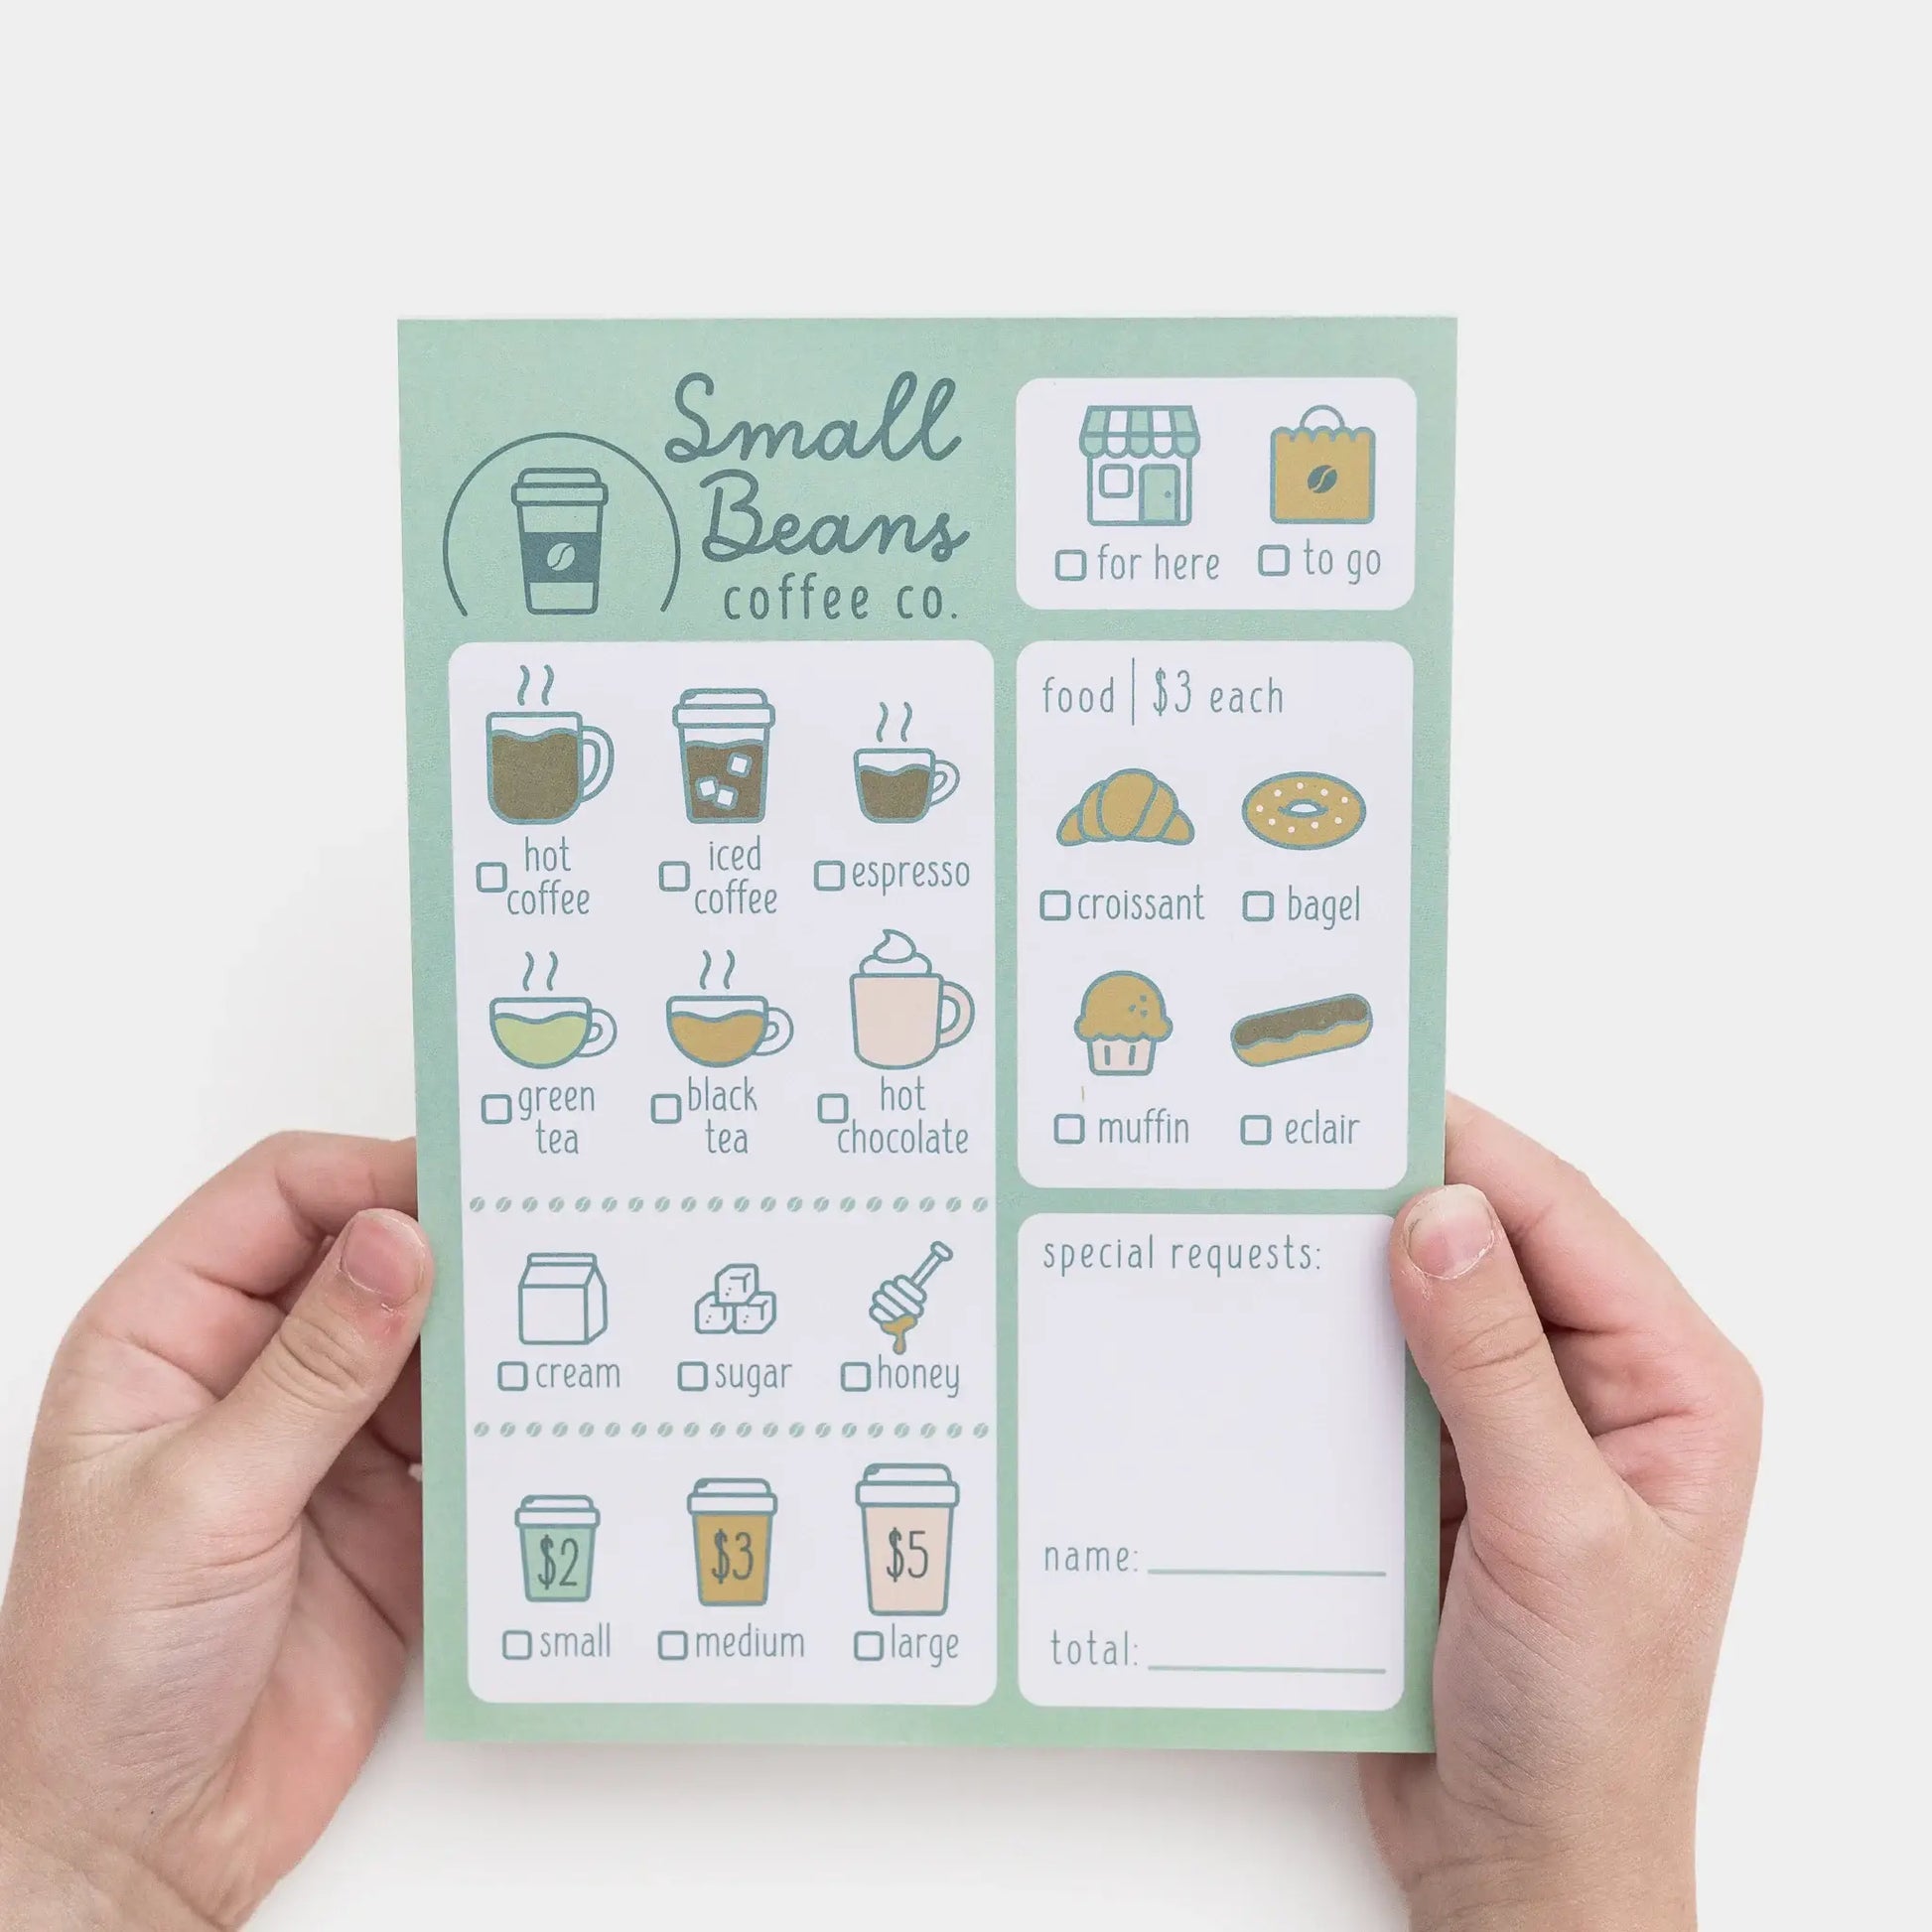 Small
Beans
coffee co.
for here
to go
hot
coffee
iced
coffee
espresso
green
tea
black
tea
hot
chocolate
cream
sugar
honey
$2
$3
$5
small
medium
large
food | $3 each
croissant
bagel
muffin
eclair
special requests:
name:
total: